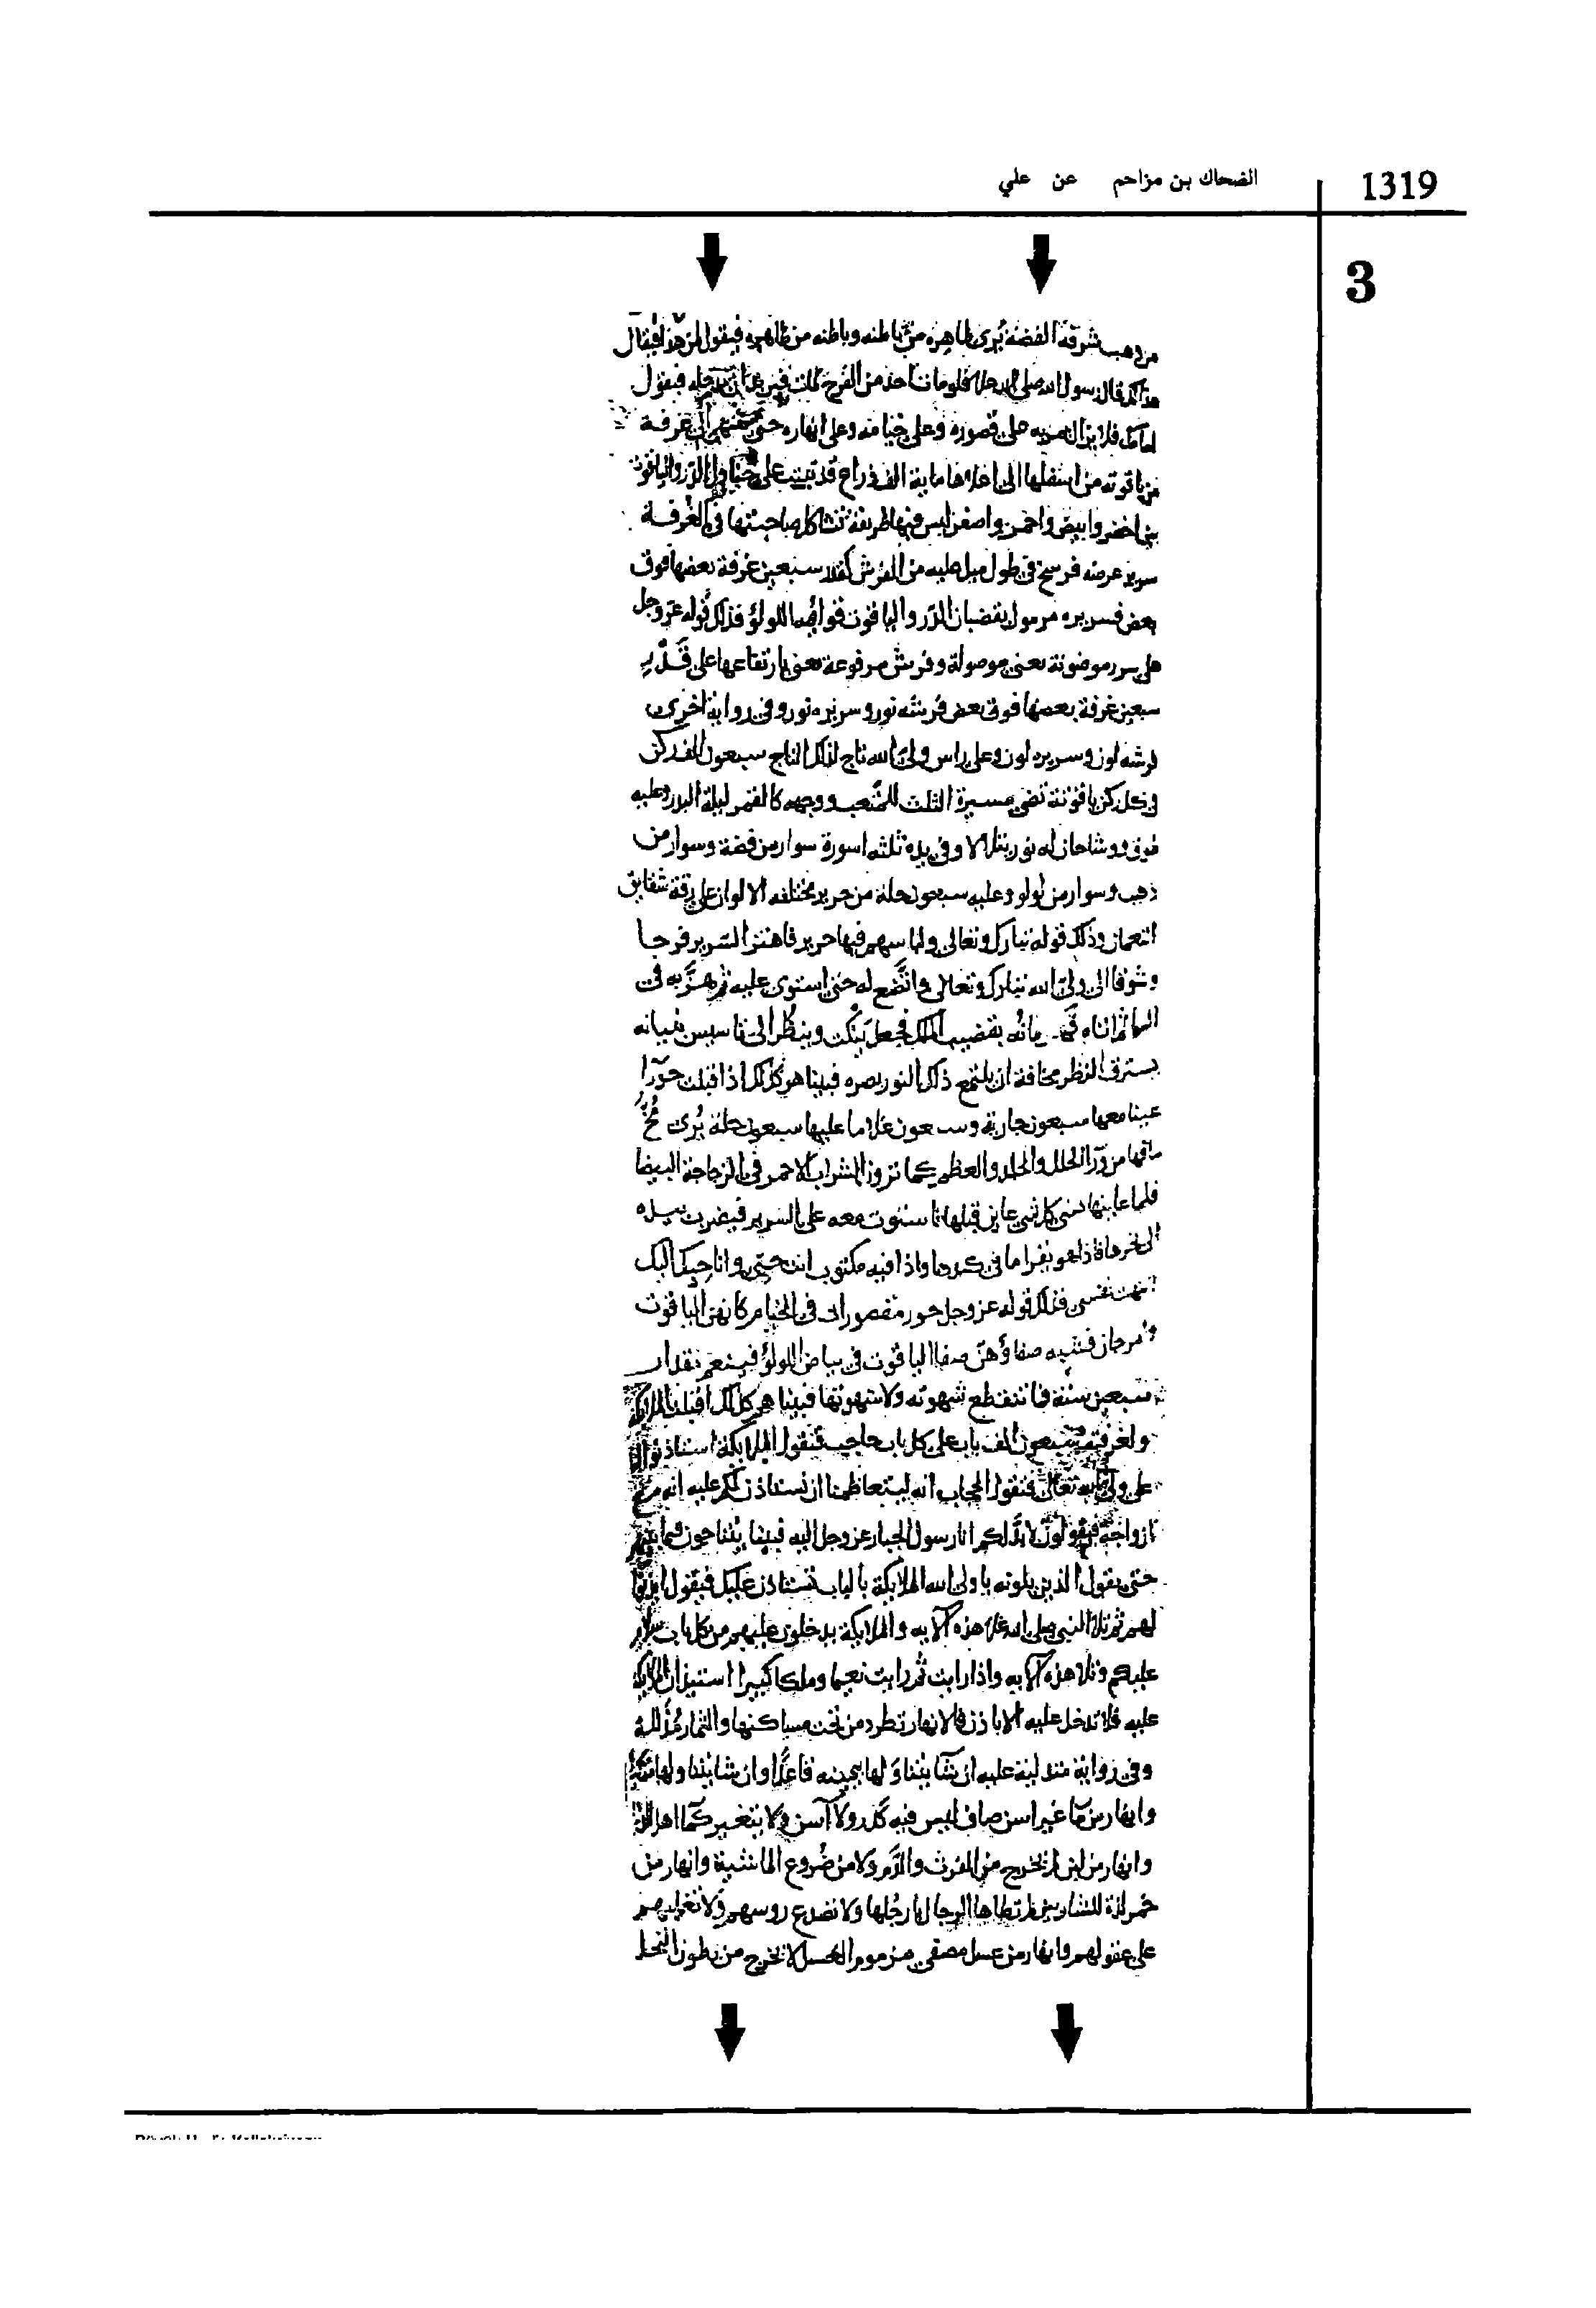 1319
الضحاك بن مزاحم عن علي
3
من ذهب شرفة الفضة يرى ظاهره من باطنه وباطنه من ظاهره فيقول لمن هذا فيقال
هذا لك قال رسول الله صلى الله عليه فلو مات احد من الفرح فيقول
امامك فلا يزال يمر به على قصوره وعلى خيامه وعلى انهاره حتى الى غرفة
من ياقوته من اسفلها الى اعلاها ماية الف ذراع قد بنيت على الدر والياقوت
بين اخضر وابيض واحمر واصفر ليس منها طريقة تشاكل صاحبتها في الغرفة
سرير عرضه فرسخ في طول ميل عليه من الفرش كقدر سبعين غرفة بعضها فوق
بعض فسريره مرمول بقضبان الدر والياقوت قوايمه اللولؤ فذلك قوله عز وجل
على سرر موضونة يعني موصولة وفرش مرفوعة يعني ارتفاعها على قدر
سبعين غرفة بعضها فوق بعض فرشه نور وسريره نور وفي رواية اخرى
فرشه لون وسريره لون وعلى راس ولي الله تاج لذلك التاج سبعون الف ركن
في كل ركن ياقوتة تضي مسيرة الثلث للمتعب ووجهه كالقمر ليلة البدر وعليه
طوق ووشاحان له نور يتلالا وفي يده ثلثه اسورة سوار من فضة وسوار من
ذهب وسوار من لولو وعليه سبعون حلة من حرير مختلفه الالوان على رقة شقايق
النعمان وذلك قوله تبارك وتعالى ولباسهم فيها حرير فاهتز السرير فرحا
وشوقا الى ولي الله تبارك وتعالى واتضع له حتى استوى عليه ثم هز به في
السما ثم اتاه بقضيب الملك فجعل ينكت وينظر الى تاسيس بنيانه
يسترق النظر مخافة ان يلتمع ذلك النور بصره فبينا هو كذلك اذ اقبلت حورا
عينا معها سبعون جارية وسبعون غلاما عليها سبعون حلة يرى مخ
ساقها من ورا الحلل والجلد والعظم كما ترون الشراب الاحمر في الزجاجة البيضا
فلما عاينها نسي كل شي عاين قبلها فاستوت معه على السرير فيضرب بيده
الى نحرها فاذا هو يقرا ما في كبدها واذا فيه مكتوب انت حبي وانا حبك اليك
انتهت نفسي فذلك قوله عز وجل حور مقصورات في الخيام كانهن الياقوت
والمرجان فشبه صفاؤهن صفا الياقوت في بياض اللولؤ فيتنعم مقدار
سبعين سنة فما تنقطع شهوته ولا شهوتها فبينا هم كذلك اقبلت الملايكة
ولغرفته سبعون الف باب على كل باب حاجب فتقول الملايكة استاذنوا لنا
على ولي الله تعالى فتقول الحجاب انه ليتعاظمنا ان نستاذن لكم عليه انه مع
ازواجه فيقولون لابد لكم انا رسول الجبار عز وجل اليه فبينا يتناجون فيما بينهم
حتى يقول الذين يلونه يا ولي الله الملايكة بالباب تستاذن عليك فيقول ايذنوا
لهم ثم تلا النبي صلى الله عليه هذه الآيه والملايكة يدخلون عليهم من كل باب سلام
عليكم وتلا هذه الآيه واذا رايت ثم رايت نعيما وملكا كبيرا استيذان الملايكة
عليه فلا تدخل عليه الا باذن فالانهار تطرد من تحت مساكنها والثمار مذللة
وفي رواية متدلية عليه ان شا يتناولها بيمينه قاعدا وان شا يتناولها متكيا
وانهار من ما غير اسن صاف ليس فيه كدر ولا آسن ولا يتغير كما اهل الدنيا
وانهار من لبن لم يخرج من الفرث والدم ولا من ضروع الماشية وانهار من
خمر لذة للشاربين لم تطاها الرجال بارجلها ولا تصدع روسهم ولا تغلبهم
على عقولهم وانهار من عسل مصفى من موم العسل لا يخرج من بطون النحل